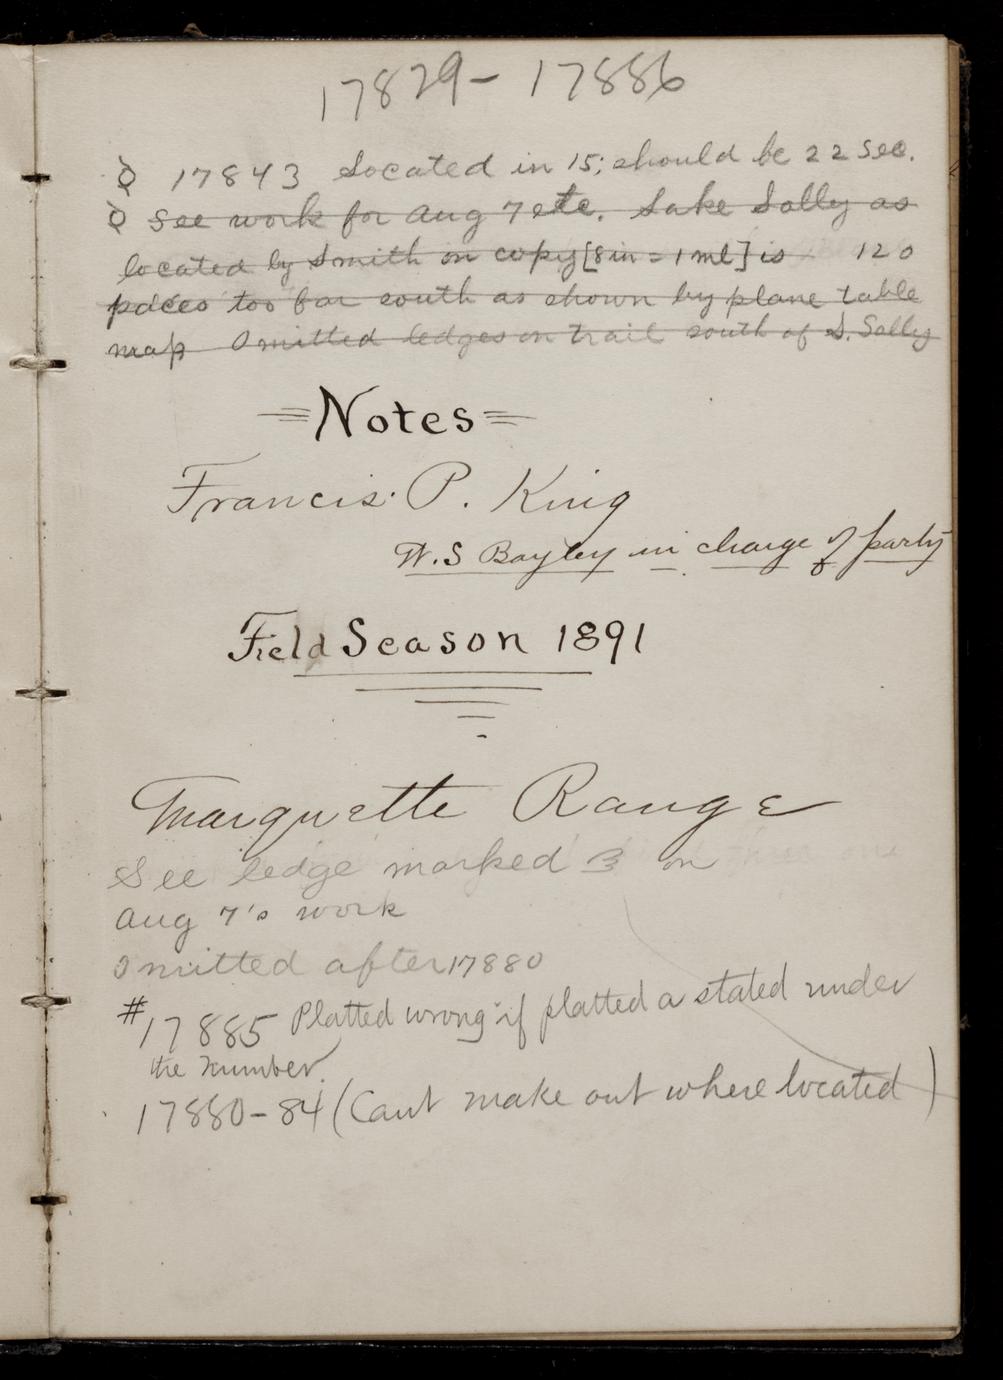 17829- 17886
Q 17843 Located in 15; should be 22 Sec.
Q See work for Aug 7 etc. Lake Sally as
located by Smith on copy [8in = 1 ml] is 120
paces too far south as shown by plane table
map Omitted ledges on trail south of L. Sally
=Notes=
Francis. P. King
W.S Bayley in charge of party
Field Season 1891
Marquette Range
See ledge marked B on
Aug 7's work
Omitted after 17880
#17885 Platted wrong if platted a stated under
the number.
17880-84 (Cant make out where located)